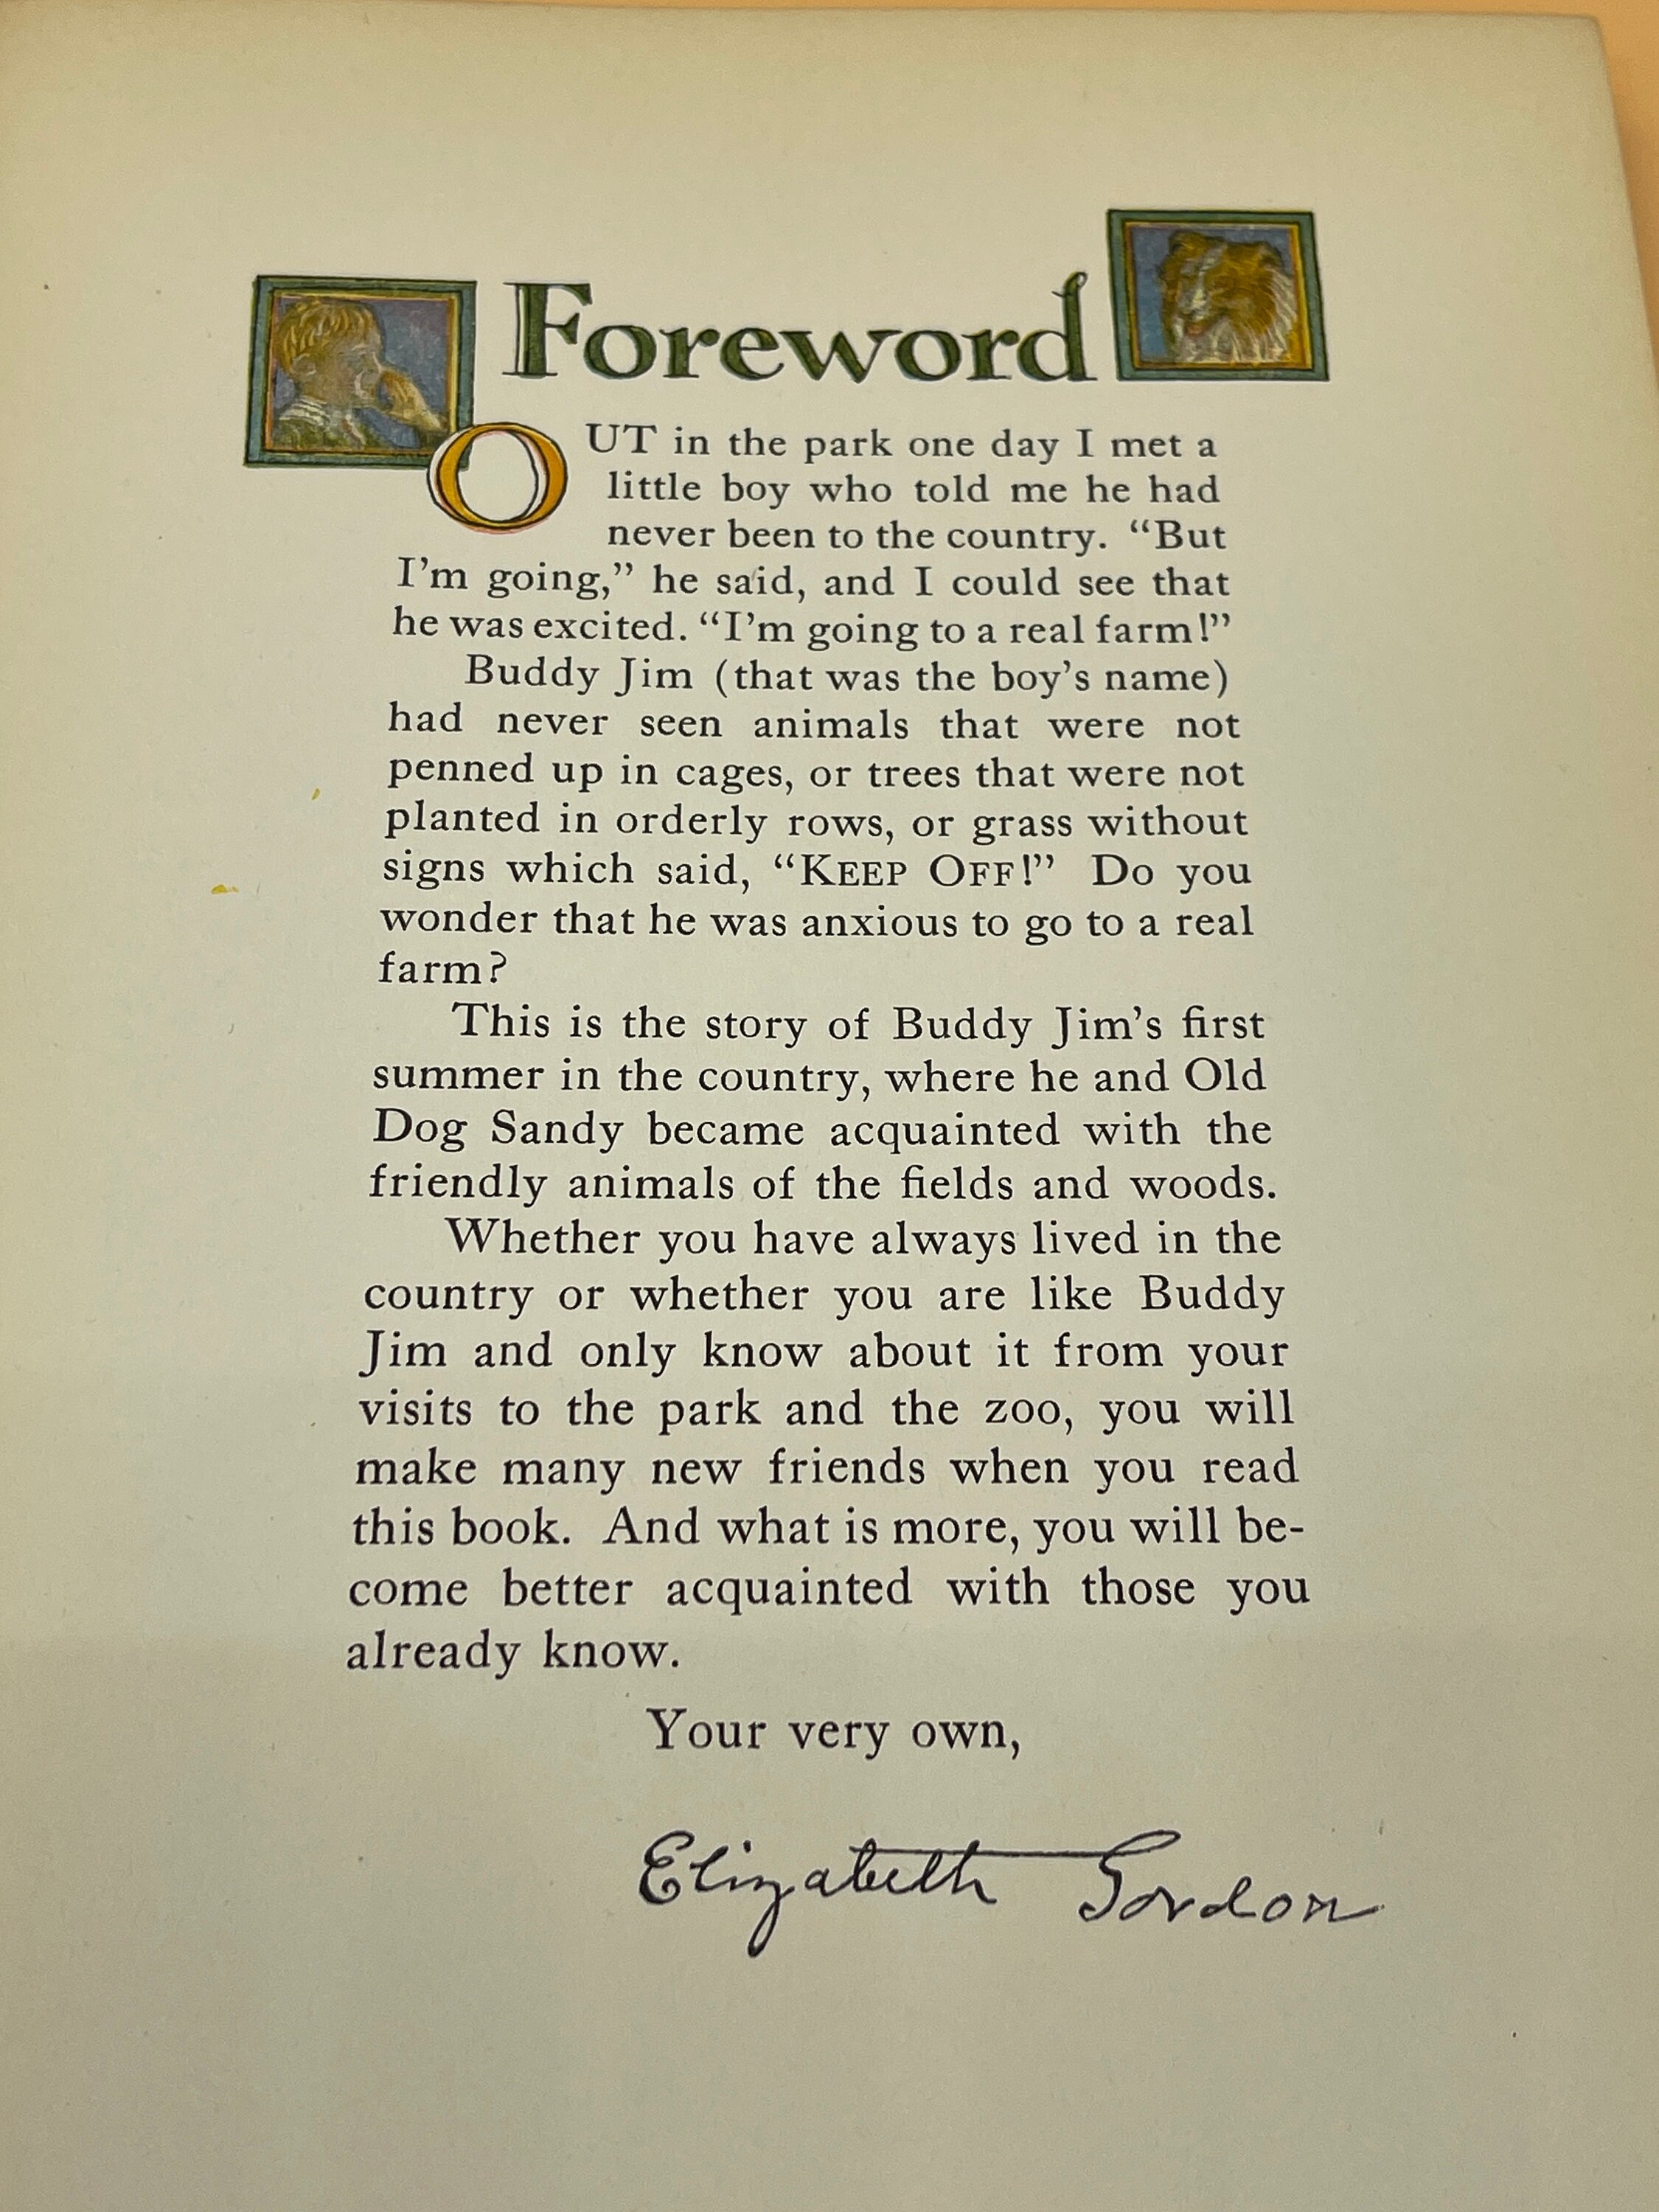 Foreword
OUT in the park one day I met a
little boy who told me he had
never been to the country. “But
I’m going,” he said, and I could see that
he was excited. “I’m going to a real farm!”
Buddy Jim (that was the boy’s name)
had never seen animals that were not
penned up in cages, or trees that were not
planted in orderly rows, or grass without
signs which said, “KEEP OFF!” Do you
wonder that he was anxious to go to a real
farm?
This is the story of Buddy Jim’s first
summer in the country, where he and Old
Dog Sandy became acquainted with the
friendly animals of the fields and woods.
Whether you have always lived in the
country or whether you are like Buddy
Jim and only know about it from your
visits to the park and the zoo, you will
make many new friends when you read
this book. And what is more, you will be-
come better acquainted with those you
already know.
Your very own,
Elizabeth Gordon